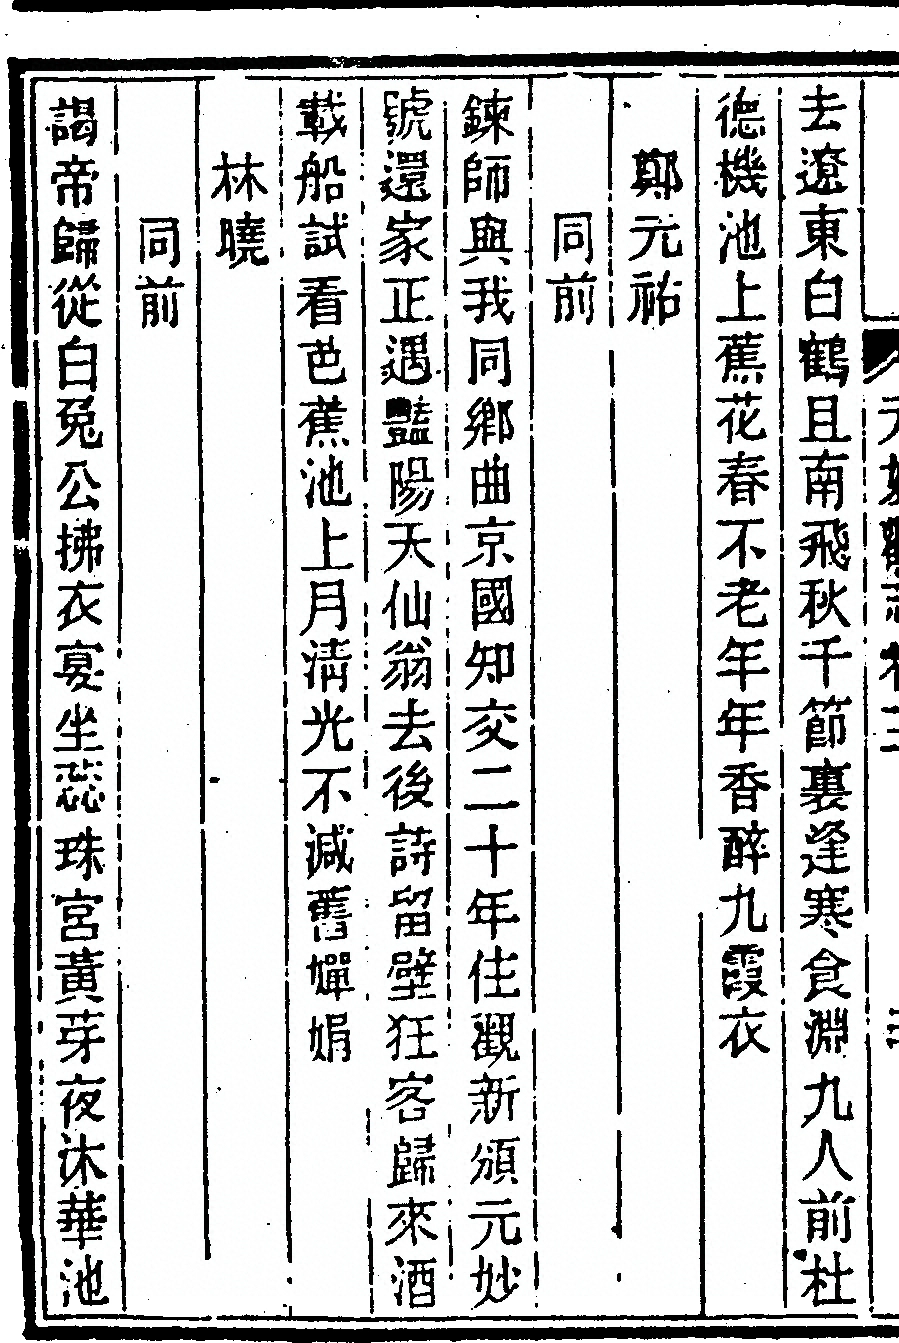 去遼東白鶴且南飛秋千節裏逢寒食淵九人前杜
德機池上蕉花春不老年年香醉九霞衣
鄭元祐
同前
鍊師與我同鄉曲京國知交二十年住觀新頒元妙
號還家正遇豔陽天仙翁去後詩留壁狂客歸來酒
載船試看芭蕉池上月清光不減舊嬋娟
林曉
同前
謁帝歸從白兎公拂衣宴坐蕊珠宮黃芽夜沐華池